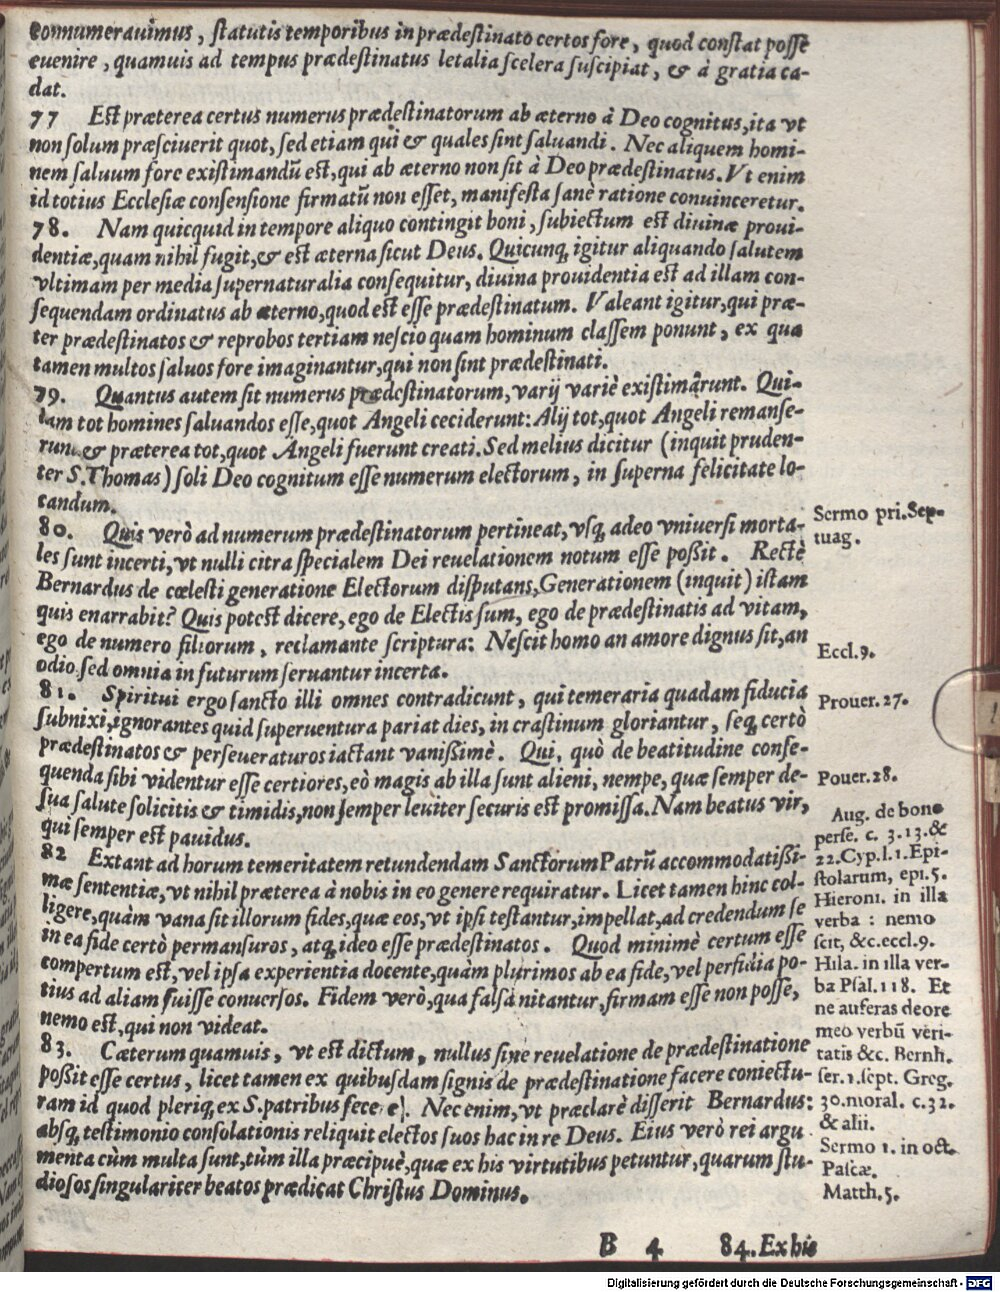 connumerauimus, statutis temporibus in prædestinato certos fore, quod constat posse
euenire, quamuis ad tempus prædestinatus letalia scelera suscipiat, & à gratia ca-
dat.
77 Est præterea certus numerus prædestinatorum ab æterno à Deo cognitus, ita vt
non solum præsciuerit quot, sed etiam qui & quales sint saluandi. Nec aliquem homi-
nem saluum fore existimandū est, qui ab æterno non sit à Deo prædestinatus. Vt enim
id totius Ecclesiæ consensione firmatū non esset, manifesta sanè ratione conuinceretur.
78. Nam quicquid in tempore aliquo contingit boni, subiectum est diuinæ proui-
dentiæ, quam nihil fugit, & est æterna sicut Deus. Quicunq; igitur aliquando salutem
vltimam per media supernaturalia consequitur, diuina prouidentia est ad illam con-
sequendam ordinatus ab æterno, quod est esse prædestinatum. Valeant igitur, qui præ-
ter prædestinatos & reprobos tertiam nescio quam hominum classem ponunt, ex qua
tamen multos saluos fore imaginantur, qui non sint prædestinati.
79. Quantus autem sit numerus prædestinatorum, varij variè existimârunt. Qui-
dam tot homines saluandos esse, quot Angeli ceciderunt: Alij tot, quot Angeli remanse-
runt & præterea tot, quot Angeli fuerunt creati. Sed melius dicitur (inquit pruden-
ter S. Thomas) soli Deo cognitum esse numerum electorum, in superna felicitate lo-
candum.
80. Quis verò ad numerum prædestinatorum pertineat, vsq; adeo vniuersi morta-
les sunt incerti, vt nulli citra specialem Dei reuelationem notum esse poßit. Rectè
Bernardus de cœlesti generatione Electorum disputans, Generationem (inquit) istam
quis enarrabit? Quis potest dicere, ego de Electis sum, ego de prædestinatis ad vitam,
ego de numero filiorum, reclamante scriptura: Nescit homo an amore dignus sit, an
odio, sed omnia in futurum seruantur incerta.
81. Spiritui ergo sancto illi omnes contradicunt, qui temeraria quadam fiducia
subnixi, ignorantes quid superuentura pariat dies, in crastinum gloriantur, seq; certò
prædestinatos & perseueraturos iactant vanißimè. Qui, quò de beatitudine conse-
quenda sibi videntur esse certiores, eò magis ab illa sunt alieni, nempe, quæ semper de
sua salute solicitis & timidis, non semper leuiter securis est promissa. Nam beatus vir,
qui semper est pauidus.
82 Extant ad horum temeritatem retundendam Sanctorum Patrū accommodatißi-
mæ sententiæ, vt nihil præterea à nobis in eo genere requiratur. Licet tamen hinc col-
ligere, quàm vana sit illorum fides, quæ eos, vt ipsi testantur, impellat, ad credendum se
in ea fide certò permansuros, atq; ideo esse prædestinatos. Quod minimè certum esse
compertum est, vel ipsa experientia docente, quàm plurimos ab ea fide, vel perfidia po-
tius ad aliam fuisse conuersos. Fidem verò, qua falsa nitantur, firmam esse non posse,
nemo est, qui non videat.
83. Cæterum quamuis, vt est dictum, nullus sine reuelatione de prædestinatione
poßit esse certus, licet tamen ex quibusdam signis de prædestinatione facere coniectu-
ram id quod pleriq; ex S. patribus fecere. Nec enim, vt præclarè disserit Bernardus:
absq; testimonio consolationis reliquit electos suos hac in re Deus. Eius verò rei argu
menta cùm multa sunt, tùm illa præcipuè, quæ ex his virtutibus petuntur, quarum stu-
diosos singulariter beatos prædicat Christus Dominus.
B 4 84. Ex his
Sermo pri. Sep-
tuag.
Eccl. 9.
Prouer. 27.
Pouer. 28.
Aug. de bono
perse. c. 3. 13. &
22. Cyp. l. 1. Epi-
stolarum, epi. 5.
Hieroni. in illa
verba : nemo
scit, &c. eccl. 9.
Hila. in illa ver-
ba Psal. 118. Et
ne auferas de ore
meo verbū veri-
tatis &c. Bernh.
ser. 1. sept. Greg.
30. moral. c. 32.
& alii.
Sermo 1. in oct.
Pascæ.
Matth. 5.
Digitalisierung gefördert durch die Deutsche Forschungsgemeinschaft - DFG